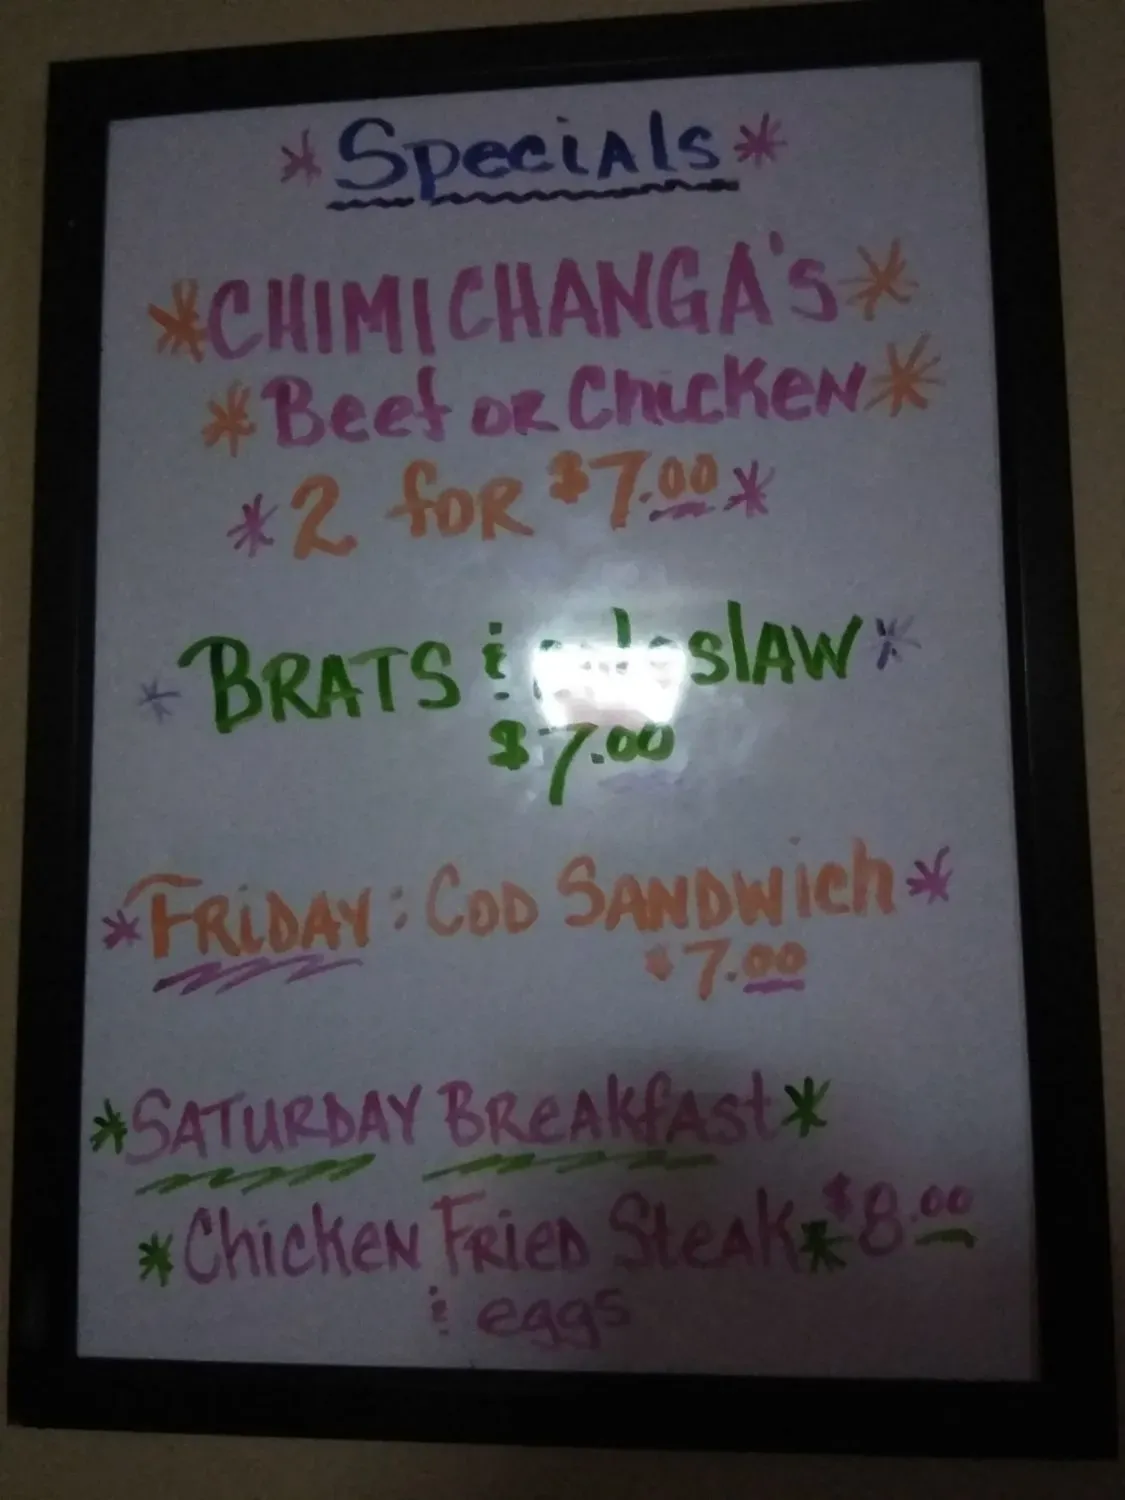 * Specials *
* CHIMICHANGA's *
* Beef or Chicken *
* 2 for $7.00 *
* BRATS & coleslaw *
$7.00
* FRIDAY: COD SANDWich *
$7.00
* SATURDAY Breakfast *
* Chicken Fried Steak * $8.00
& eggs